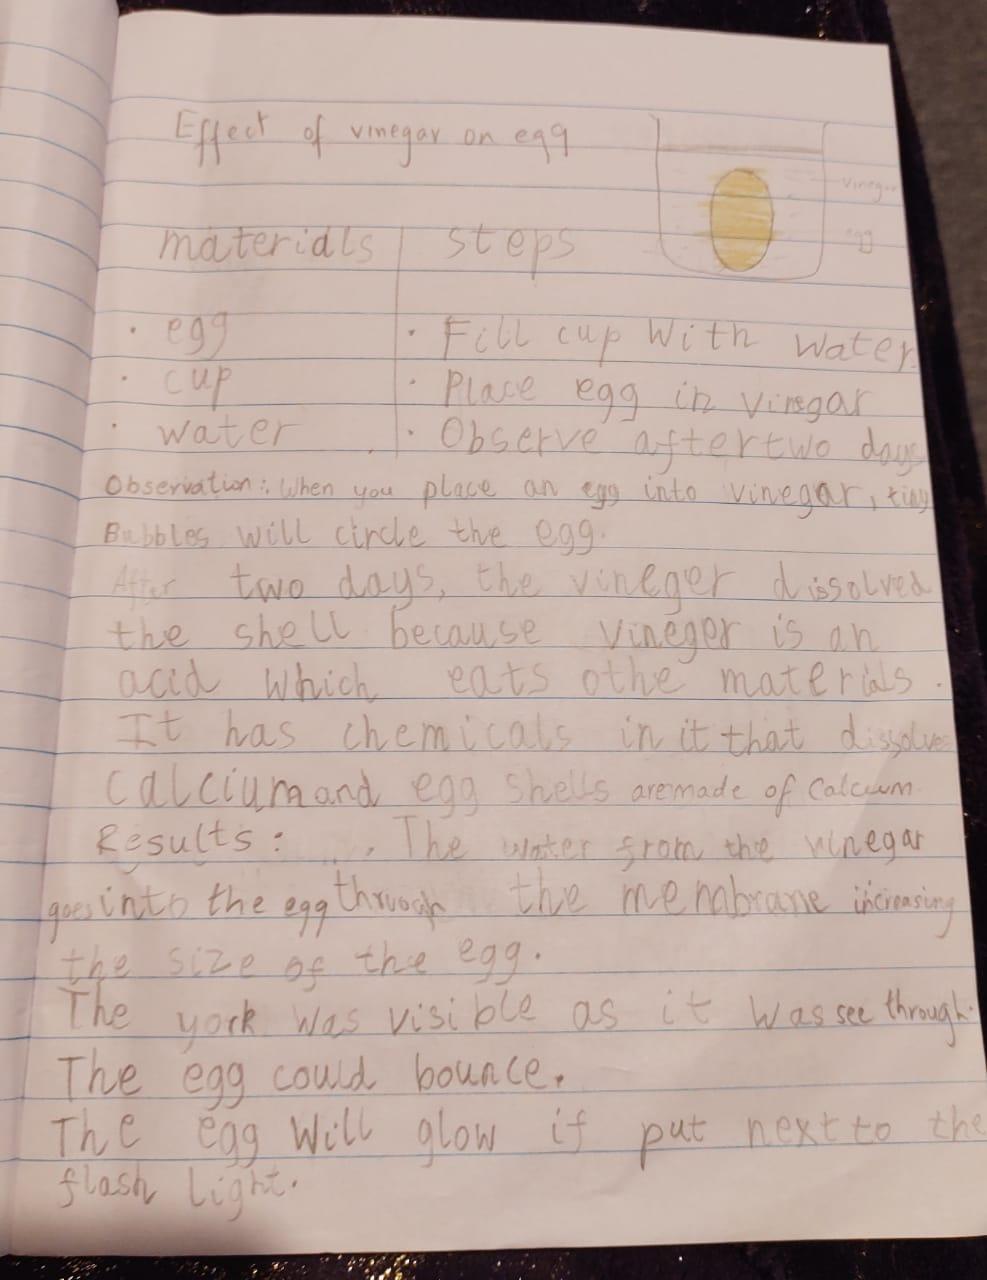 Effect of vinegar on egg
vinegar
egg
materials | steps
· egg · Fill cup with water.
· cup · Place egg in vinegar
· water · Observe after two days
Observation: When you place an egg into vinegar, tiny
Bubbles will circle the egg.
After two days, the vineger dissolved
the shell because vineger is an
acid which eats othe materials.
It has chemicals in it that dissolve
calcium and egg shells are made of calcium
Results: The water from the vinegar
goes into the egg through the membrane increasing
the size of the egg.
The york was visible as it was see through.
The egg could bounce.
The egg will glow if put next to the
flash light.